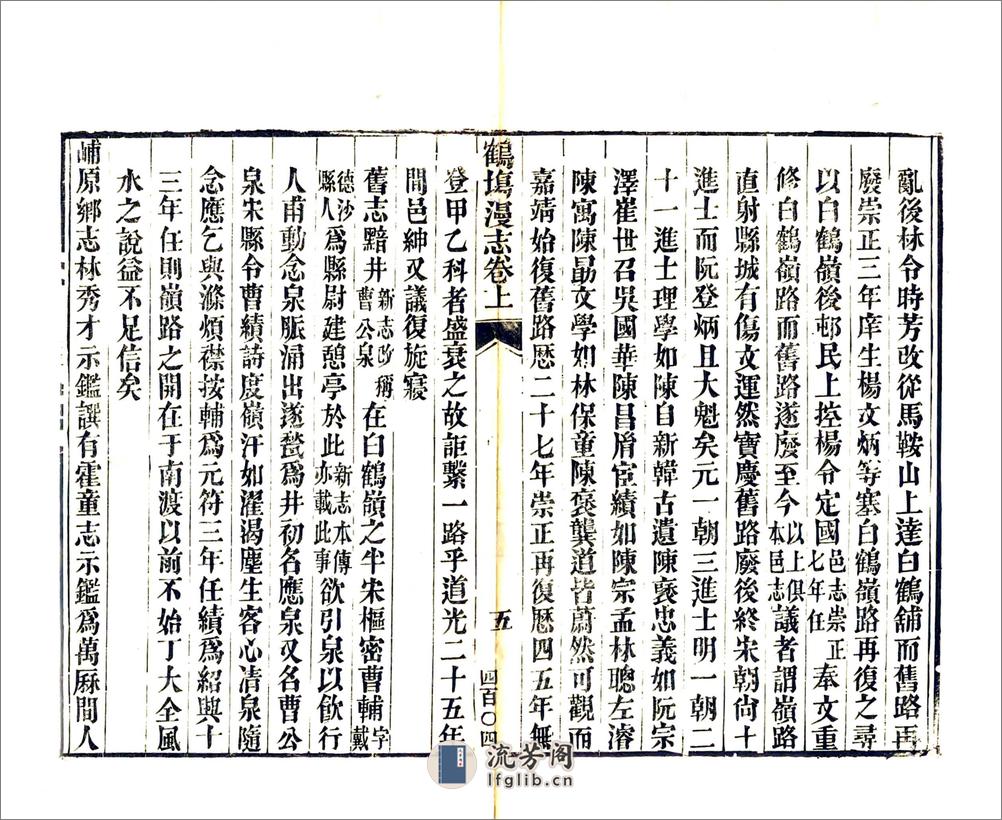 亂後林令時芳改從馬鞍山上達白鶴舖而舊路再
廢崇正三年庠生楊文炳等塞白鶴嶺路再復之尋
以白鶴嶺後邨民上控楊令定國邑志崇正七年任奉文重
修白鶴嶺路而舊路遂廢至今以上俱本邑志議者謂嶺路
直射縣城有傷文運然寶慶舊路廢後終宋朝尚十
進士而阮登炳且大魁矣元一朝三進士明一朝二
十一進士理學如陳自新韓古遺陳褎忠義如阮宗
澤崔世召吳國華陳昌脣宦績如陳宗孟林聰左濬
陳寓陳勗文學如林保童陳褎龔道皆蔚然可觀而
嘉靖始復舊路歴二十七年崇正再復歴四五年無
鶴塲漫志卷上
五
四百〇四
登甲乙科者盛衰之故詎繫一路乎道光二十五年
間邑紳又議復旋寢
舊志黯井新志改稱曹公泉在白鶴嶺之半宋樞密曹輔字載
德沙縣人爲縣尉建憩亭於此新志本傳亦載此事欲引泉以飲行
人甫動念泉脈涌出遂甃爲井初名應泉又名曹公
泉宋縣令曹績詩度嶺汗如濯渴塵生客心清泉隨
念應乞與滌煩襟按輔爲元符三年任績爲紹興十
三年任則嶺路之開在于南渡以前不始丁大全風
水之說益不足信矣
峬原鄉志林秀才示鑑譔有霍童志示鑑爲萬厤間人
流芳阁
lfglib.cn